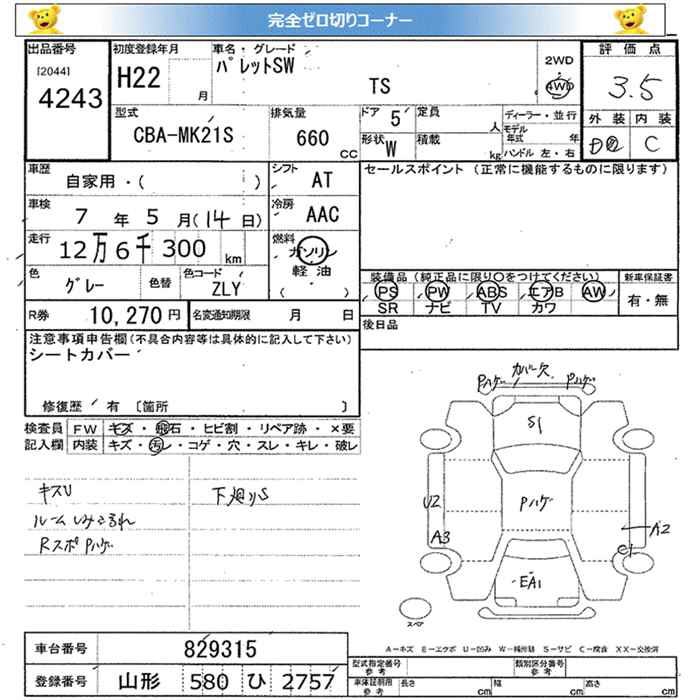 完全ゼロ切りコーナー
出品番号
[2044]
4243
初度登録年月
H22 月
車名・グレード
パレットSW
TS
2WD
4WD
評価点
3.5
外装 内装
C
型式
CBA-MK21S
排気量
660 CC
ドア 5
定員 人
形状 W
積載 kg
ディーラー・並行
モデル年式 年
ハンドル 左・右
車歴
自家用・( )
シフト
AT
セールスポイント (正常に機能するものに限ります)
車検
7 年 5 月 (14 日)
冷房
AAC
走行
12万6千300 km
燃料
ガソリン
軽油
( )
色
グレー
色替
色コード
ZLY
装備品 (純正品に限り○をつけてください)
PS PW ABS エアB AW
SR ナビ TV カワ
新車保証書
有・無
R券 10,270 円
名変通知期限 月 日
後日品
注意事項申告欄 (不具合内容等は具体的に記入して下さい)
シートカバー
修復歴 / 有 〔箇所 〕
検査員記入欄
FW キズ・飛石・ヒビ割・リペア跡・×要
内装 キズ・汚レ・コゲ・穴・スレ・キレ・破レ
キズU
ルームしみよごれ
Rスポ Pハゲ
下廻りS
カバー欠
Pハゲ
Pハゲ
S1
Pハゲ
U2
A3
A2
C1
EA1
スペア
A-キズ E-エクボ U-凹み W-補修跡 S-サビ C-腐食 XX-交換済
車台番号 829315
登録番号 山形 580 ひ 2757
型式指定番号 参考
類別区分番号 参考
車体証明用 参考
長さ cm
幅 cm
高さ cm